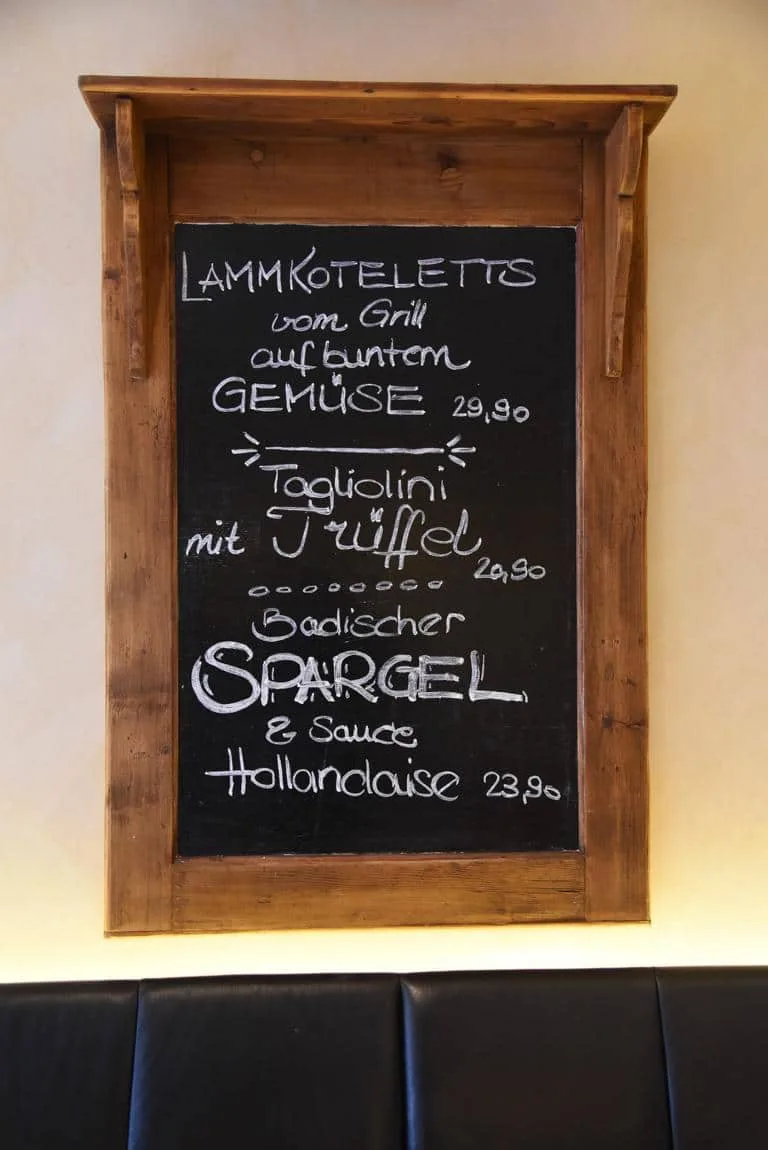 LAMMKOTELETTS
vom Grill
auf buntem
GEMÜSE 29,90
Tagliolini
mit Trüffel
20,90
Badischer
SPARGEL
& Sauce
Hollandaise 23,90